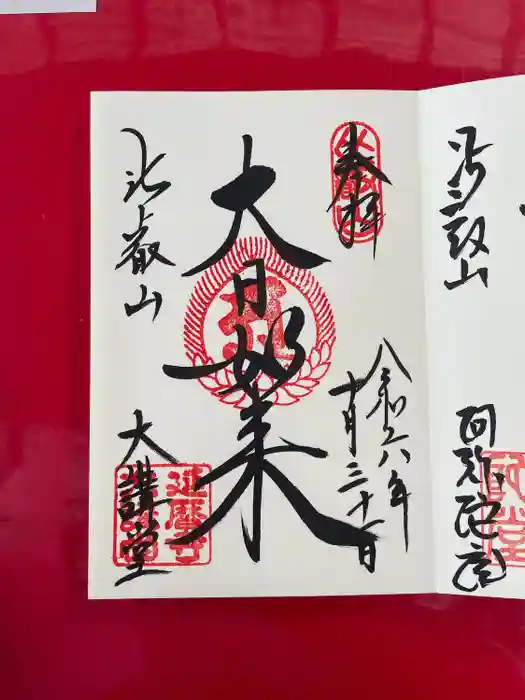 比叡山
阿弥陀堂
奉拝
令和六年
十月三十一日
大日如来
比叡山
大講堂
延暦寺